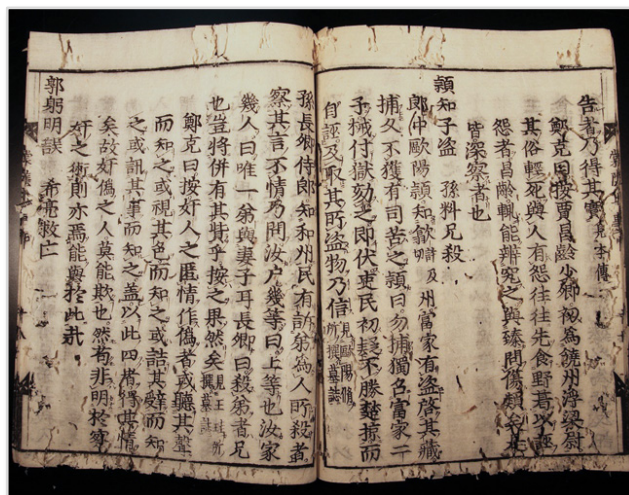 告者乃得其實見本傳
鄭克曰按賈昌齡少卿初為饒州浮梁尉
其俗輕死與人有怨往往先食野葛以誣
怨者昌齡輒能辨究之與臻問傷類矣此
皆深察者也
頴知子盜 孫料兄殺
郎中歐陽頴知歙州富家有盜啓其藏
捕久不獲有司苦之頴曰勿捕獨召富家二
子械付獄劾之即伏吏民初疑不勝楚掠而
自誣及取其所盜物乃信見歐陽脩所撰墓誌
孫長卿侍郎知和州民有訴弟為人所殺者
察其言不情乃問汝户幾等曰上等也汝家
幾人曰唯一弟與妻子耳長卿曰殺弟者兄
也豈將併有其貲乎按之果然矣見王珪所撰墓誌
鄭克曰按奸人之匿情作偽者或聽其聲
而知之或視其色而知之或詰其辭而知
之或訊其事而知之盖以此四者得其情
矣故奸偽之人莫能欺也然苟非明於察
奸之術則亦焉能與於此哉
郭躬明誤 希亮救亡